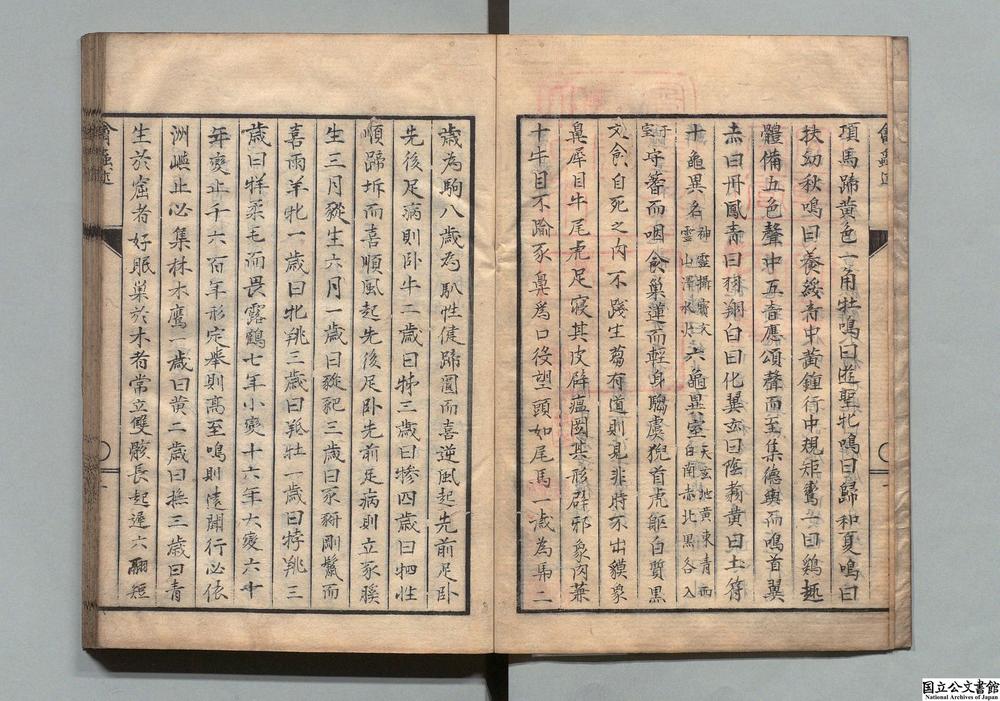 項馬蹄黄色一角牡鳴曰遊聖牝鳴曰歸和夏鳴曰
扶幼秋鳴曰養綏音中黄鍾行中規矩鸞一曰鷄趣
體備五色聲中五音應頌聲而至集德輿而鳴首翼
赤曰丹鳳青曰 翔白曰化翼玄曰陰翥黄曰土符
十龜異名神靈攝寳文靈山澤水火六龜異室天玄地黄東青西白南赤北黒各入
于室守蓍而咽食巢蓮而輕身騶虞猊首虎軀白質黒
文食自死之肉不踐生芻有道則見非時不出貘象
鼻犀目牛尾虎足寝其皮辟瘟圖其形辟邪象肉兼
十牛目不踰豕鼻為口役望頭如尾馬一歳為馬二
歳為駒八歳為馬八性健蹄圓而喜逆風起先前足卧
先後足病則卧牛二歳曰 三歳曰犙四歳曰牭性
順蹄坼而喜順風起先後足卧先前足病則立豕 
生三月豵生六月一歳曰豵豝三歳曰豕豣剛鬣而
喜雨羊牝一歳曰牝 三歳曰羒牡一歳曰牸 三
歳曰牂柔毛而畏露鶴七年小變十六年大變六十
年變止千六百年形定舉則高至鳴則遠聞行必依
洲嶼止必集林木鷹一歳曰黄二歳曰撫三歳曰青
生於窟者好眠巢於木者常立雙骹長起遲六翮短
国立公文書館
National Archives of Japan